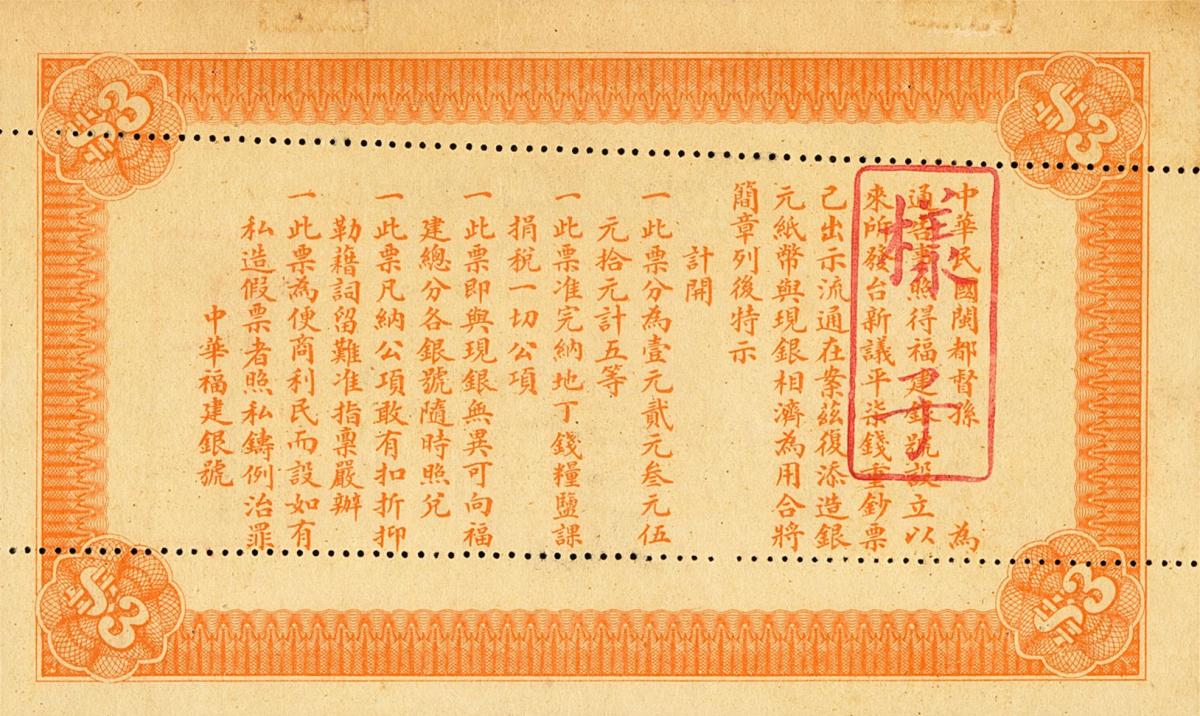 $3
$3
中華民國閩都督孫　為
通告事照得福建銀號設立以
來所發台新議平柒錢重鈔票
已出示流通在案茲復添造銀
元紙幣與現銀相濟為用合將
簡章列後特示
計開
一此票分為壹元貳元叁元伍
元拾元計五等
一此票准完納地丁錢糧鹽課
捐稅一切公項
一此票即與現銀無異可向福
建總分各銀號隨時照兌
一此票凡納公項敢有扣折抑
勒藉詞留難准指禀嚴辦
一此票為便商利民而設如有
私造假票者照私鑄例治罪
中華福建銀號
樣
$3
$3